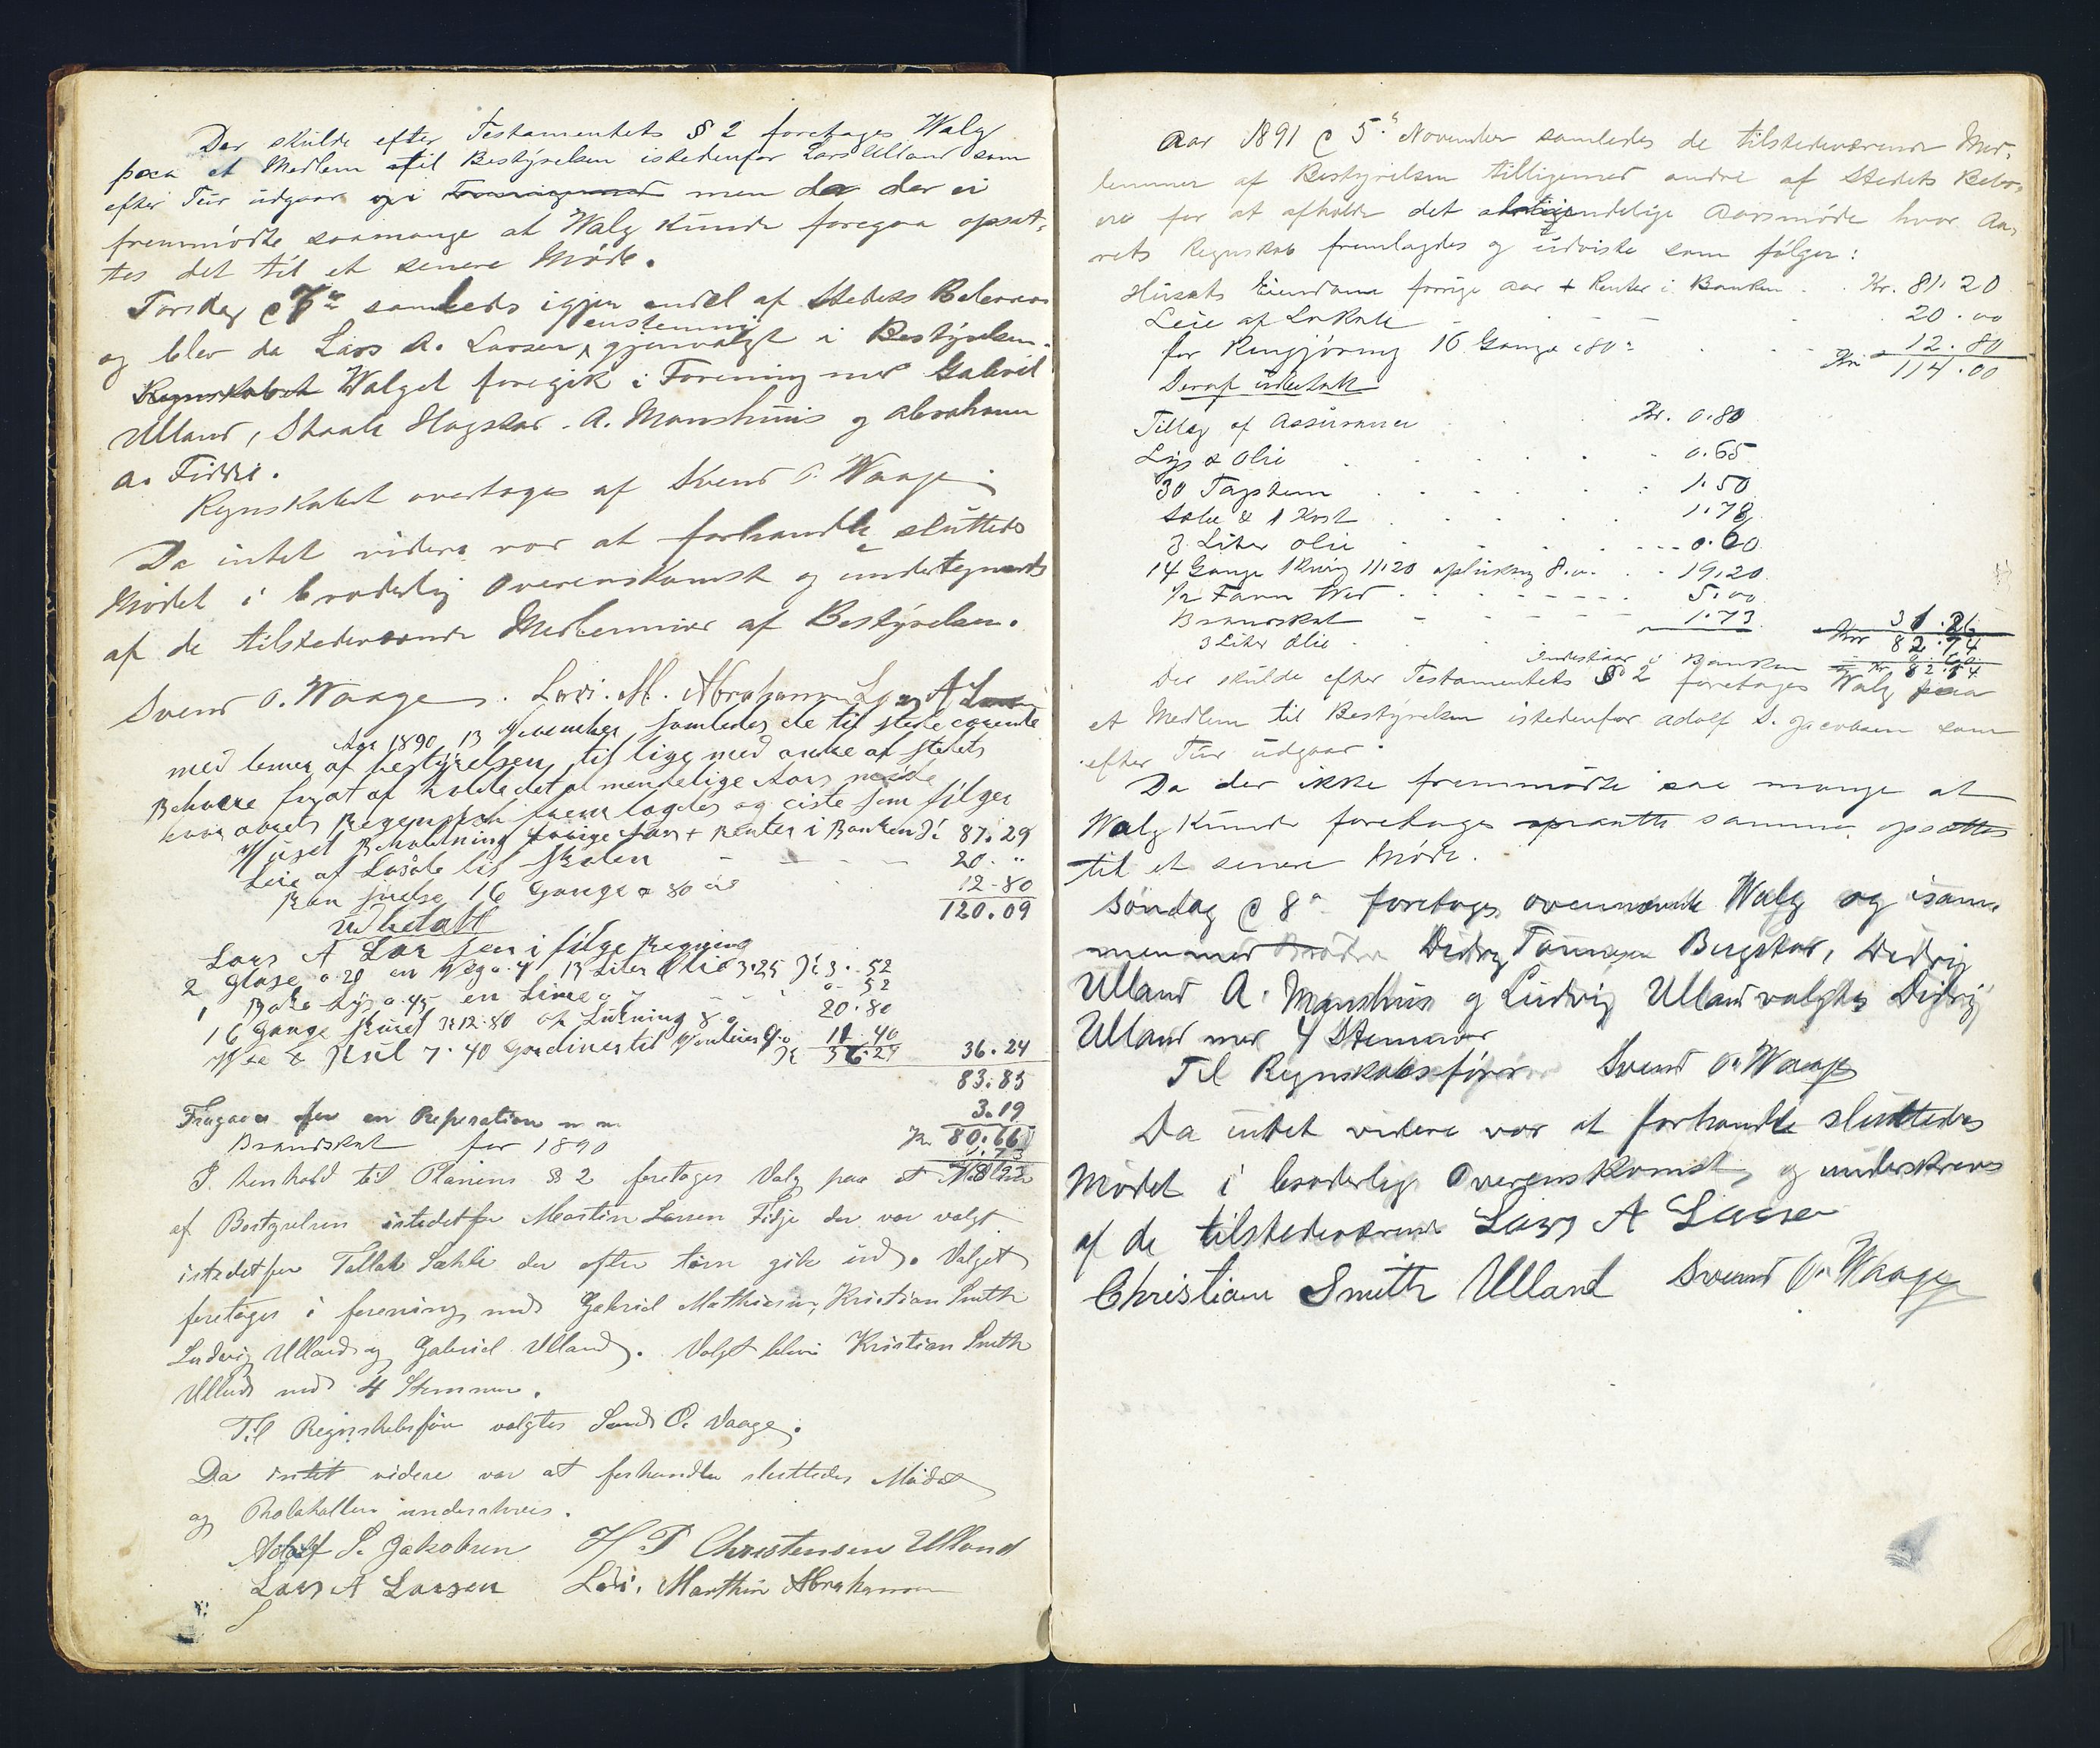 Der skulde efter Testamentets § 2 foretages Walg
paa et Medlem til Bestyrelsen istedenfor Lars Ulland som
efter Tur udgaar og i men da der ei
fremmødte saamange at Walg kunde foregaa opsat-
tes det til et senere Møde.
Torsdag samledes igjen endel af Stedets Beboere
og blev da Lars A. Larsen enstemmig gjenvalgt i Bestyrelsen.
Regnskabet Walget foregik i Forening med Gabriel
Ulland, Staale Hogskar. A. Manshuus og Abraham
A. Fidde.
Regnskabet overtoges af Svend O. Waage
Da intet videre var at forhandle sluttedes
Mødet i broderlig Overenskomst og undertegnedes
af de tilstedeværende Medlemmer af Bestyrelsen.
Svend O. Waage. Lodi. M. Abrahamsen Lars A Larsen
Aar 1890 13 November samledes de til stede værende
med lemer af bestyrelsen til lige med andre af stedets
Beboere for at af holde det al mendelige Aars møde
hvor aarets Regenskab frem lagdes og viste som følger
Huset Beholdning forige Aar + Renter i Banken Kr 87.29
Leie af Losale til skolen 20. "
Ren jørelse 16 Gange a 80 øre 12.80
120.09
Udbetalt
Lars A Larsen i følge Regning
2 Glase a 20 en Veg a 4 13 Liter Olie 3.25 Kr 3. 52
1 Pake Lys a 45 en Lime 0. 52
16 Gange skuret Kr 12.80 op Lukning 8.0 20.80
Vee & Kul 7.40 Gardiner til Vinduer 4.0 11.40
Kr 36.24 36.24
83.85
Fragaar for en Reperation m m. 3.19
Kr. 80.66
Brandskat for 1890 1.73
78.93
I henhold til Planens § 2 foretages Valg paa et Medlem
af Bestyrelsen istedetfor Martin Larsen Fidje der var valgt
istedetfor Tallak Sahli der efter törn gik ud. Valget
foretages i forening med Gabriel Mathiesen, Kristian Smith
Ludvig Ulland og Gabriel Ulland. Valgt blev Kristian Smith
Ulland med 4 Stemmer.
Til Regnskabsfører valgtes Svend O. Vaage.
Da intet videre var at forhandle sluttedes Mödet
og Protokollen underskreves.
Adolf S. Jakobsen H. P Christensen Ulland
Lars A Larsen Lodi. Marthin Abrahamsen
Aar 1891 d 5. November samledes de tilstedeværende Med-
lemmer af Bestyrelsen tilligemed andre af Stedets Bebo-
ere for at afholde det almindelige Aarsmøde hvor Aa-
rets Regnskab fremlagdes og udviste som følger:
Husets Eiendom forrige Aar + Renter i Banken Kr. 81.20
Leie af Lokale 20.00
for Rengjøring 16 Gange a 80 12.80
Kr 114.00
Deraf udbetalt
Tillæg af Assurance Kr. 0.80
Lys & Olie 0.65
30 Tagsten 1.50
Sæbe & 1 Kost 1.78
3 Liter Olie 0.60
14 Gange 11.20 oplukning 8.00 19.20
1/2 Favn Ved 5.00
Brandskat 1.73
3 Liter Olie
Kr 31.26
82.74
Indestaar i Banken Kr 82.14
Der skulde efter Testamentets § 2 foretages Walg paa
et Medlem til Bestyrelsen istedenfor Adolf S. Jacobsen som
efter Tur udgaar.
Da der ikke fremmødte saa mange at
Walg kunde foretages samme opsættes
til et senere Møde.
Søndag d 8 foretoges ovennævnte Walg og isam-
menmed Didrig Tønnesen Bugskar, Didrig
Ulland A. Manshus og Ludvig Ulland valgtes Didrig
Ulland med 4 Stemmer
Til Regnskabsfører Svend O. Waage
Da intet videre var at forhandle sluttedes
Mødet i broderlig Overenskomst, og underskreves
af de tilstedeværende Lars A Larsen
Christian Smith Ulland Svend O. Waage